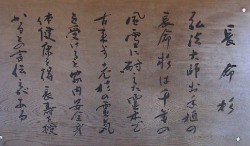 長命杉
弘法大師お手植の
長命杉は千年の
風雪に耐えた霊木で
古来より老杉の霊気
を受けると家内安全
体健康を得 長寿を授
かると言伝えられる